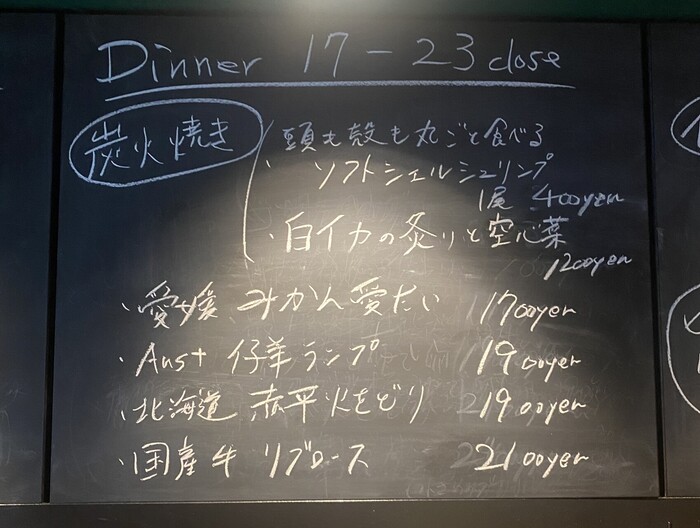 Dinner 17-23 close
炭火焼き
・頭も殻も丸ごと食べる
ソフトシェルシュリンプ
1尾 400yen
・白イカの炙りと空心菜
1200yen
・愛媛 みかん愛たい 1700yen
・Aust 仔羊ランプ 1900yen
・北海道 赤平火をどり 1900yen
・国産牛 リブロース 2100yen